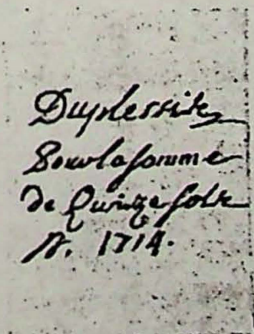 Duplessis
Pour la somme
de Quinze sols
N. 1714.